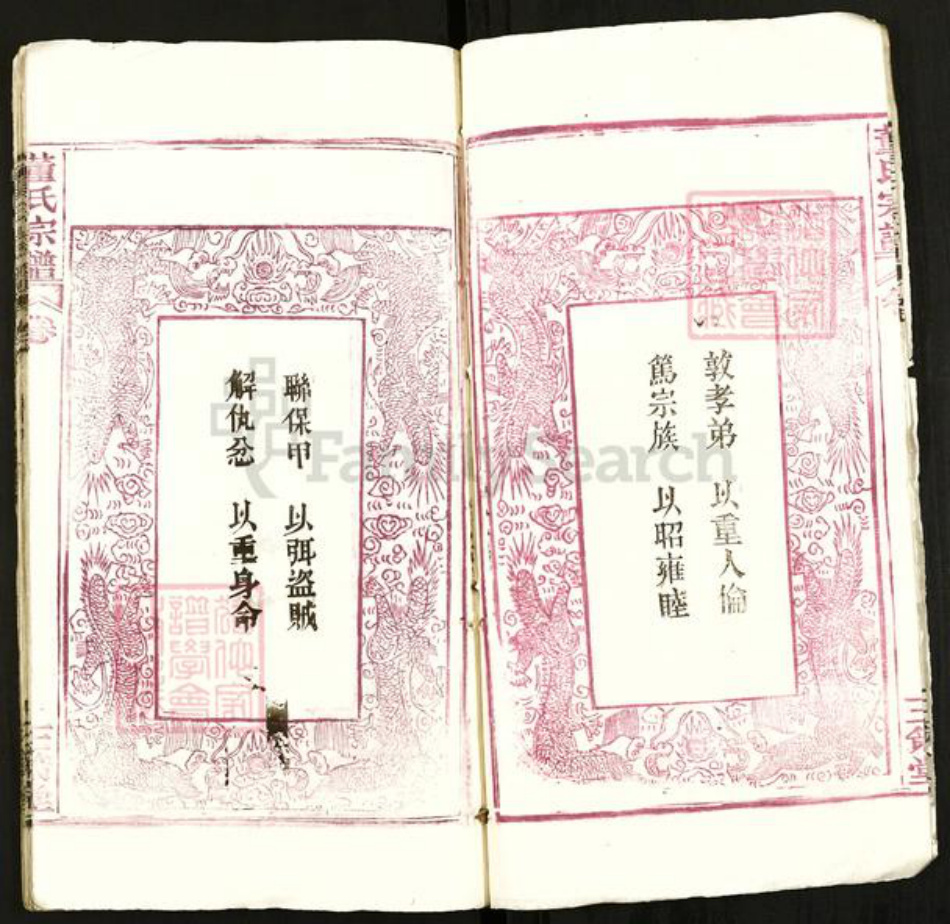 敦孝弟 以重人倫
篤宗族 以昭雍睦
聯保甲 以弭盜賊
解仇忿 以重身命
董氏宗譜 卷
Family Search
譜學會